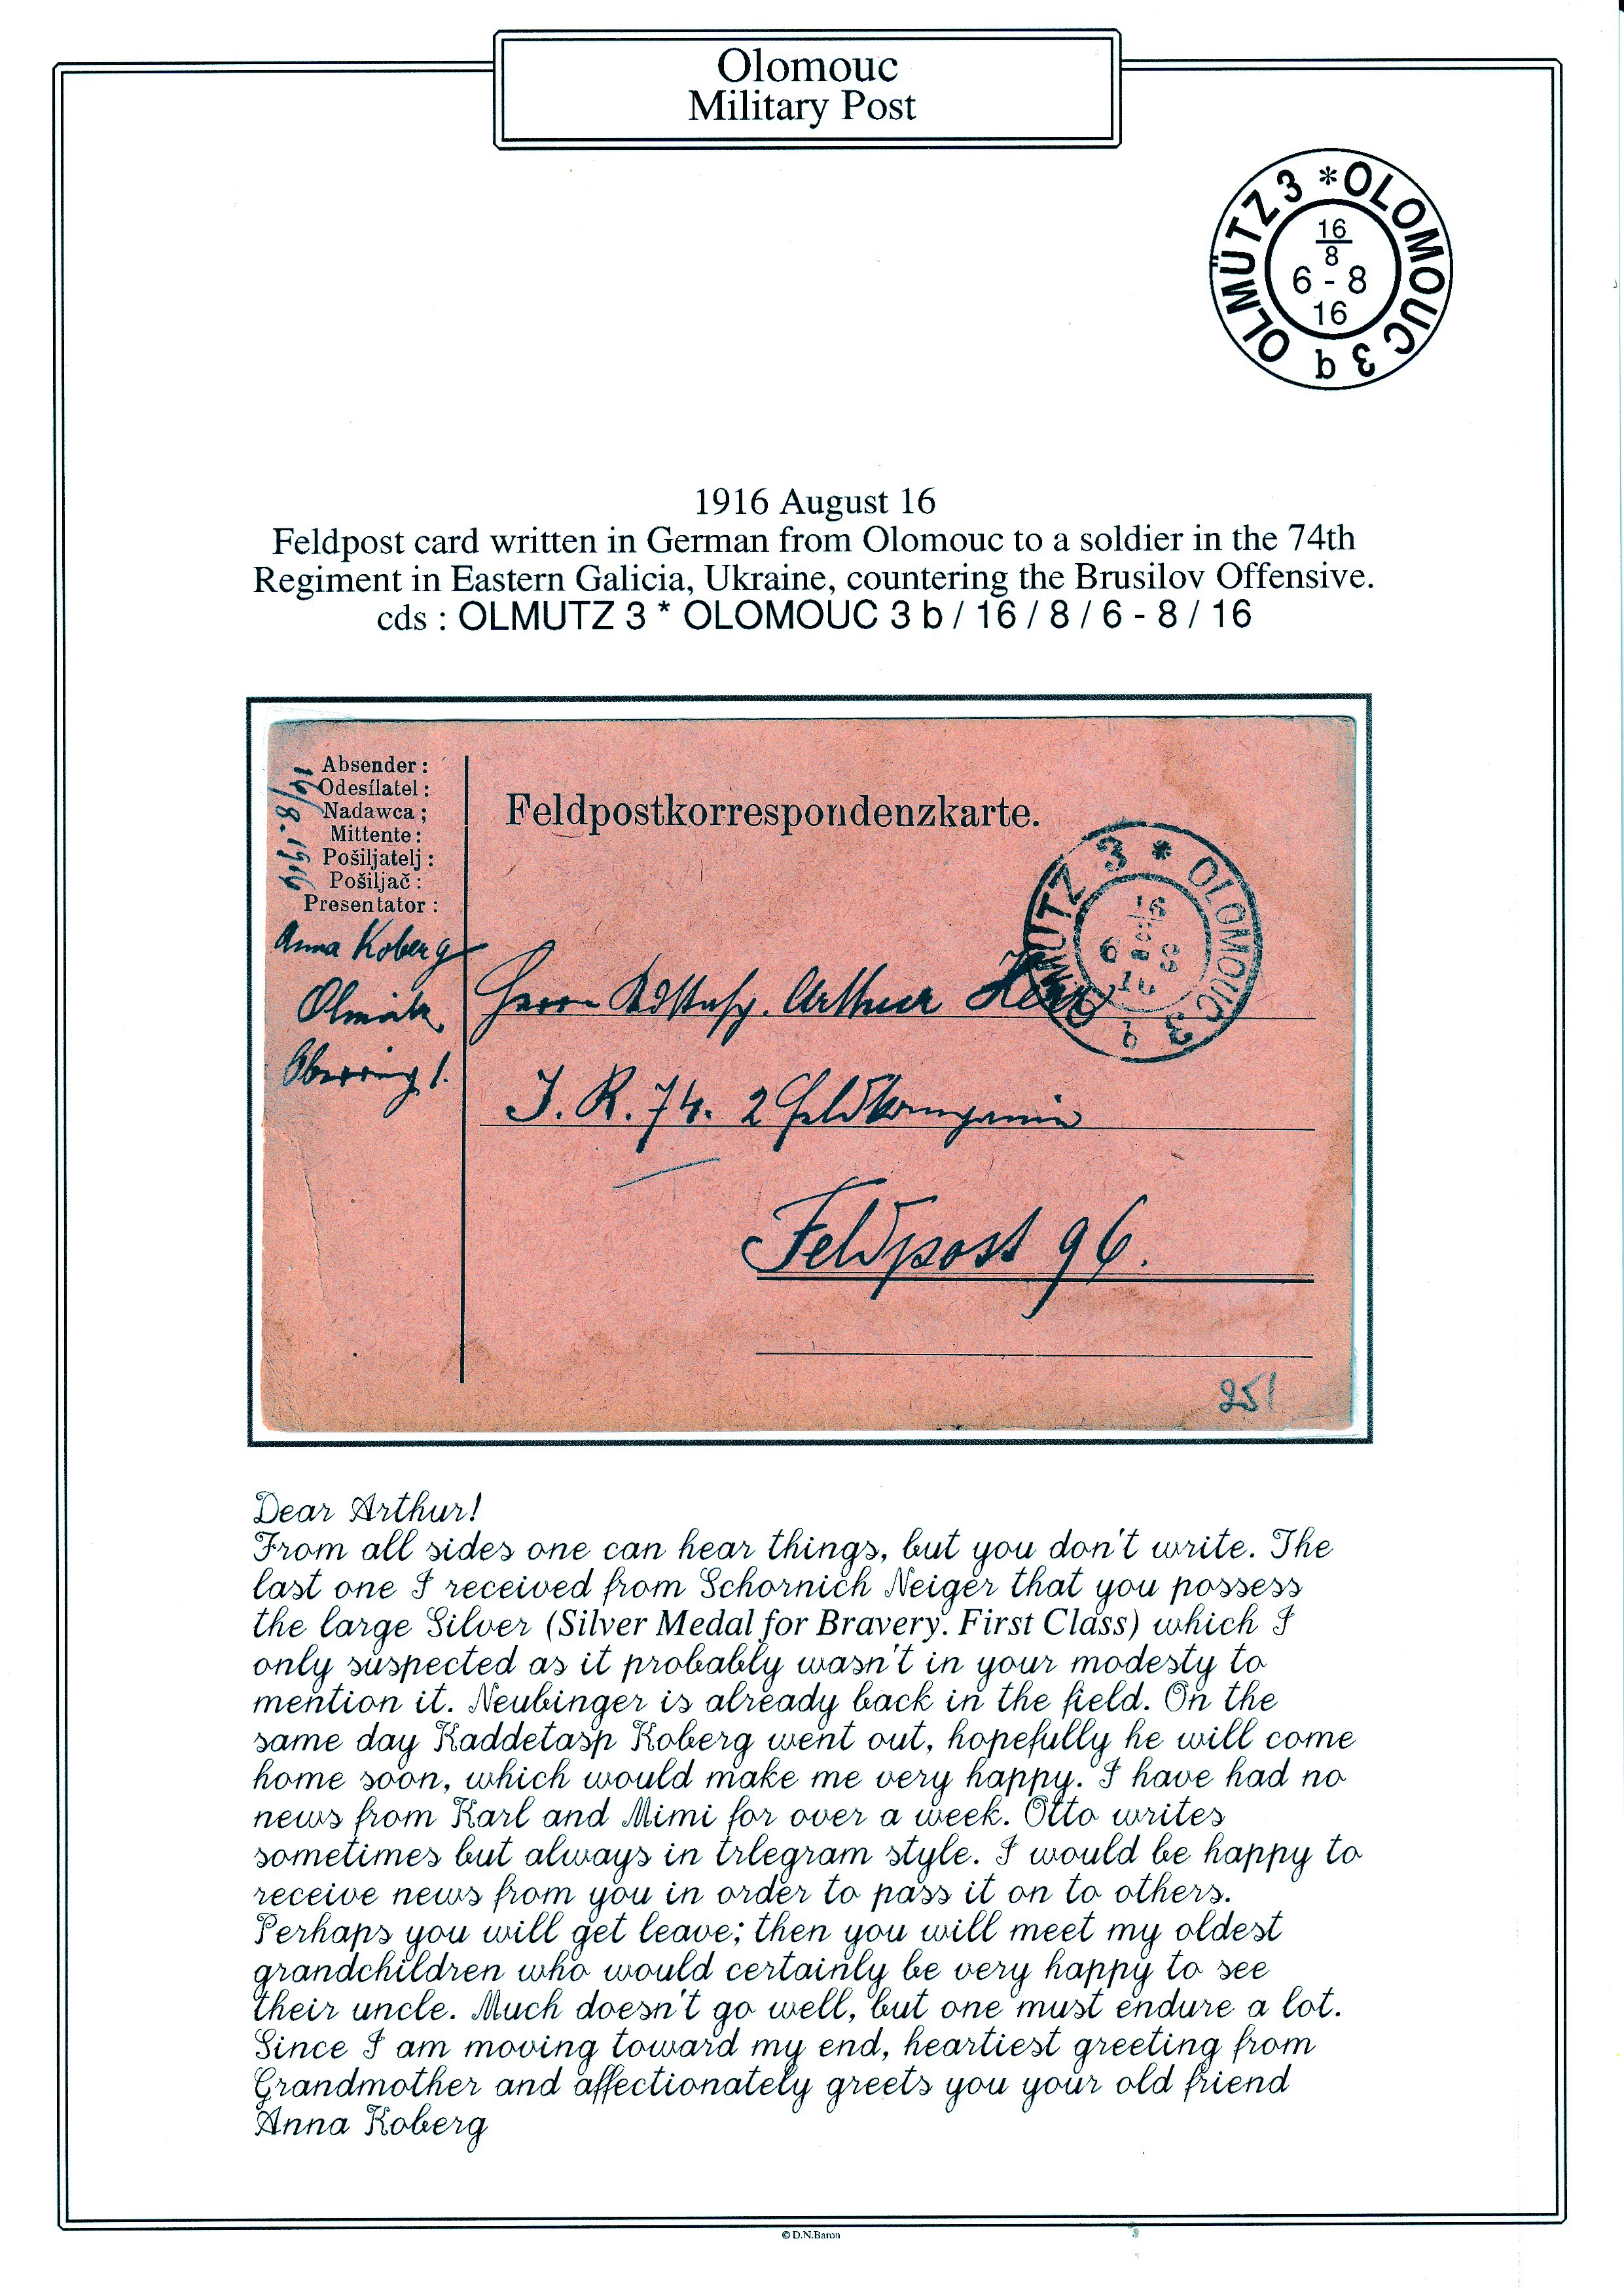 Olomouc
Military Post
OLMÜTZ 3 * OLOMOUC 3 b
16
8
6 - 8
16
1916 August 16
Feldpost card written in German from Olomouc to a soldier in the 74th
Regiment in Eastern Galicia, Ukraine, countering the Brusilov Offensive.
cds : OLMUTZ 3 * OLOMOUC 3 b / 16 / 8 / 6 - 8 / 16
Absender :
Odesílatel :
Nadawca ;
Mittente :
Pošiljatelj :
Pošiljač :
Presentator :
16/8. 1916
Anna Koberg
Olmütz
Oberring 1.
Feldpostkorrespondenzkarte.
MUTZ 3 * OLOMOUC 3 b
16
8
6 - 8
16
Herrn Arthur
J. R. 74. 2 Feldkompanie
Feldpost 96.
251
Dear Arthur!
From all sides one can hear things, but you don't write. The
last one I received from Schornich Neiger that you possess
the large Silver (Silver Medal for Bravery. First Class) which I
only suspected as it probably wasn't in your modesty to
mention it. Neubinger is already back in the field. On the
same day Kaddetasp Koberg went out, hopefully he will come
home soon, which would make me very happy. I have had no
news from Karl and Mimi for over a week. Otto writes
sometimes but always in trlegram style. I would be happy to
receive news from you in order to pass it on to others.
Perhaps you will get leave; then you will meet my oldest
grandchildren who would certainly be very happy to see
their uncle. Much doesn't go well, but one must endure a lot.
Since I am moving toward my end, heartiest greeting from
Grandmother and affectionately greets you your old friend
Anna Koberg
© D.N.Baron